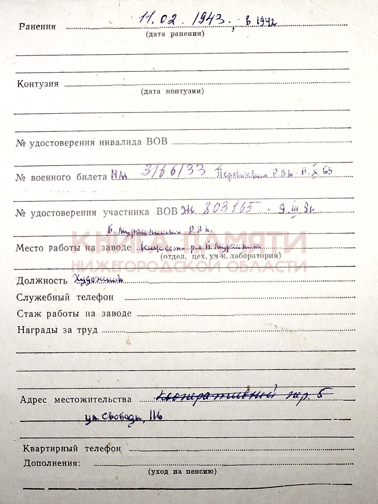 Ранения 11.02.1943, в 1942
(дата ранения)
Контузия
(дата контузии)
№ удостоверения инвалида ВОВ
№ военного билета НЛ 3166133 Р.В.к. 11.X 63
№ удостоверения участника ВОВ 803165 9 III 81
Б. Мурашкинский Р.В.к.
КНИГА ПАМЯТИ
Место работы на заводе Мурашкино
(отдел, цех, уч-к, лаборатория)
НИЖЕГОРОДСКОЙ ОБЛАСТИ
Должность Художник
Служебный телефон
Стаж работы на заводе
Награды за труд
Адрес местожительства Кооперативный пер. 5
ул. Свободы, 116
Квартирный телефон
Дополнения:
(уход на пенсию)